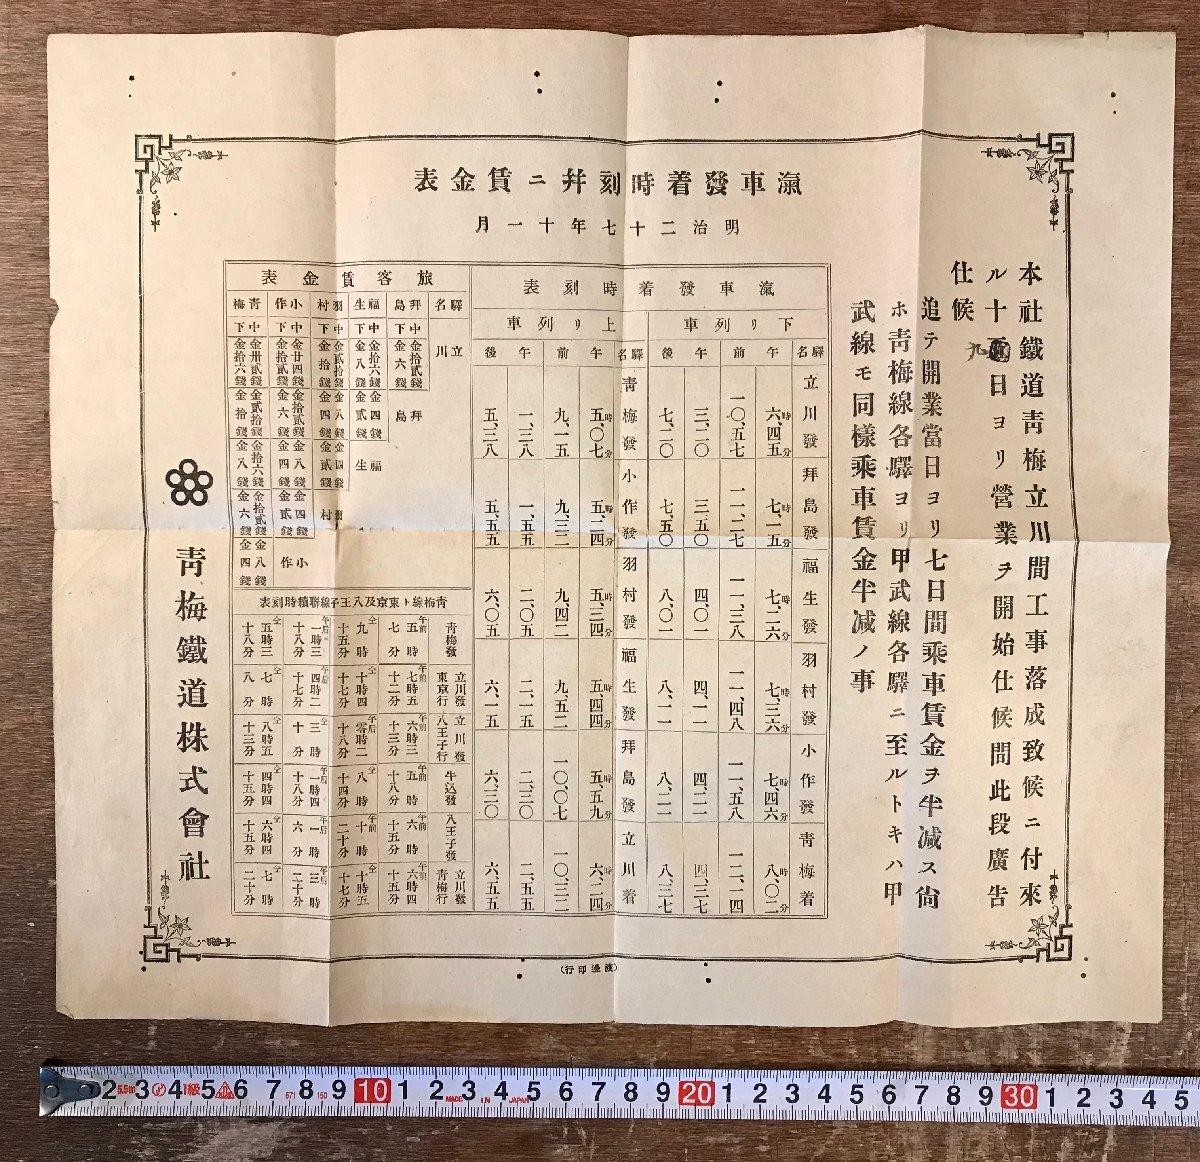 滊車發着時刻幷ニ賃金表
明治二十七年十一月
本社鐵道靑梅立川間工事落成致候ニ付來
ル十九日ヨリ營業ヲ開始仕候間此段廣吿
仕候
追テ開業當日ヨリ七日間乘車賃金ヲ半减ス尙
ホ靑梅線各驛ヨリ甲武線各驛ニ至ルトキハ甲
武線モ同樣乘車賃金半减ノ事
滊車發着時刻表
下リ列車
驛名 午前 午後
立川發 六、四五 一〇、五七 三、二〇 七、二〇
拜島發 七、一五 一一、二七 三、五〇 七、五〇
福生發 七、二六 一一、三八 四、〇一 八、〇一
羽村發 七、三六 一一、四八 四、一一 八、一一
小作發 七、四六 一一、五八 四、二一 八、二一
靑梅着 八、〇二 一二、一四 四、三七 八、三七
上リ列車
驛名 午前 午後
靑梅發 五、〇七 九、一五 一、三八 五、三八
小作發 五、二四 九、三二 一、五五 五、五五
羽村發 五、三四 九、四二 二、〇五 六、〇五
福生發 五、四四 九、五二 二、一五 六、一五
拜島發 五、五九 一〇、〇七 二、三〇 六、三〇
立川着 六、二四 一〇、三二 二、五五 六、五五
旅客賃金表
驛名 拜島 福生 羽村 小作 靑梅
中下 中下 中下 中下 中下
立川 金拾貳錢 金六錢 金拾六錢 金八錢 金貳拾錢 金拾錢 金廿四錢 金拾貳錢 金卅貳錢 金拾六錢
拜島 金四錢 金貳錢 金八錢 金四錢 金拾貳錢 金六錢 金貳拾錢 金拾錢
福生 金四錢 金貳錢 金八錢 金四錢 金拾六錢 金八錢
羽村 金四錢 金貳錢 金拾貳錢 金六錢
小作 金八錢 金四錢
靑梅線ト東京及八王子線聯續時刻表
靑梅發 午前五時七分 仝九時十五分 午后一時三十八分 仝五時三十八分
立川發東京行 午前七時十二分 仝十時四十七分 午后四時二十七分 仝七時八分
立川發八王子行 午前六時三十三分 午后零時二十八分 仝三時十分 仝八時五十三分
牛込發 午前五時十八分 仝八時十四分 午后一時四十八分 仝四時四十五分
八王子發 午前六時十五分 午前十時二十分 午后一時六分 仝六時四十五分
立川發靑梅行 午前六時四十五分 仝十時五十七分 午后三時二十分 仝七時二十分
靑梅鐵道株式會社
(渡邊印行)
2 5.5m 3 4 1級 5 6 7 8 9 10 1 2 3 4 5 6 7 8 9 20 1 2 3 4 5 6 7 8 9 30 1 2 3 4 5
MADE IN JAPAN